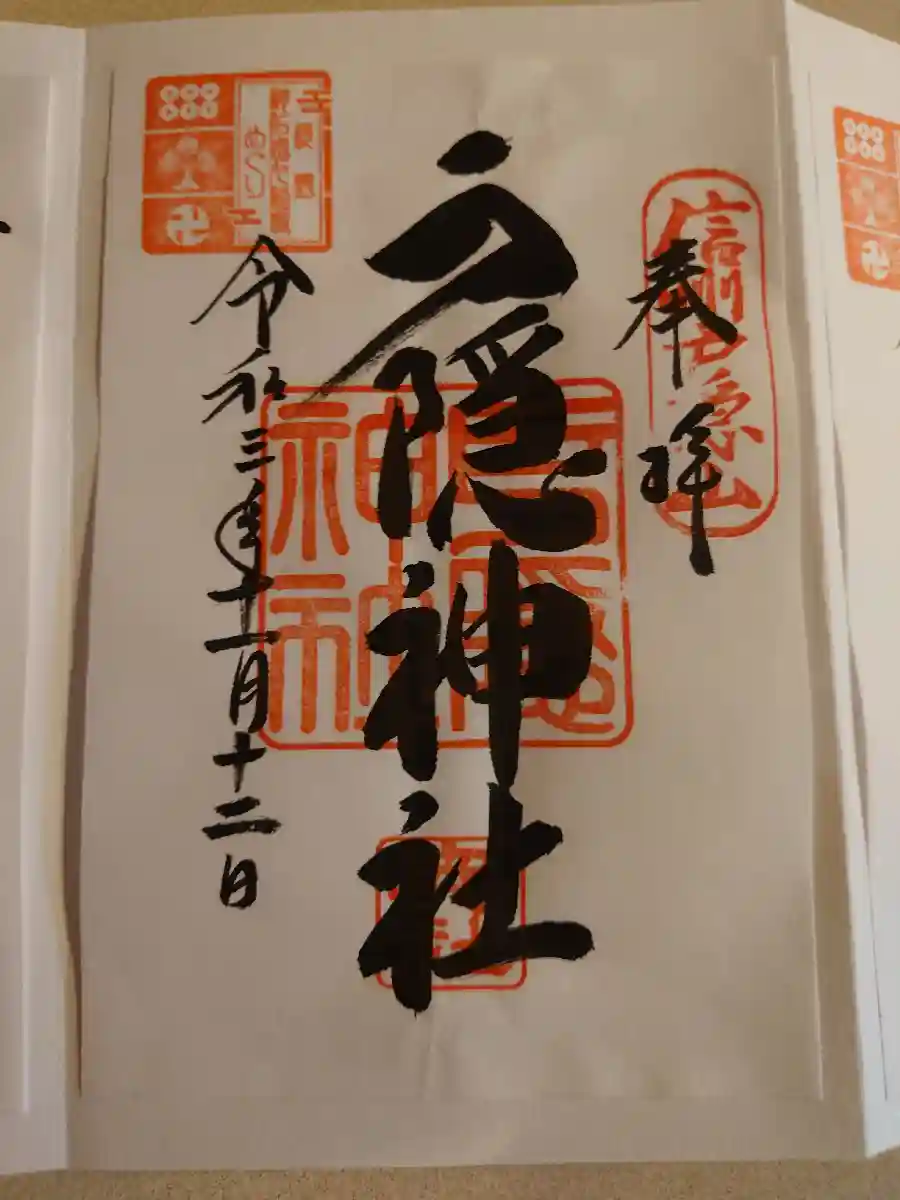 奉拝
信州戸隠山
戸隠神社
戸隠神社
令和三年十一月十二日